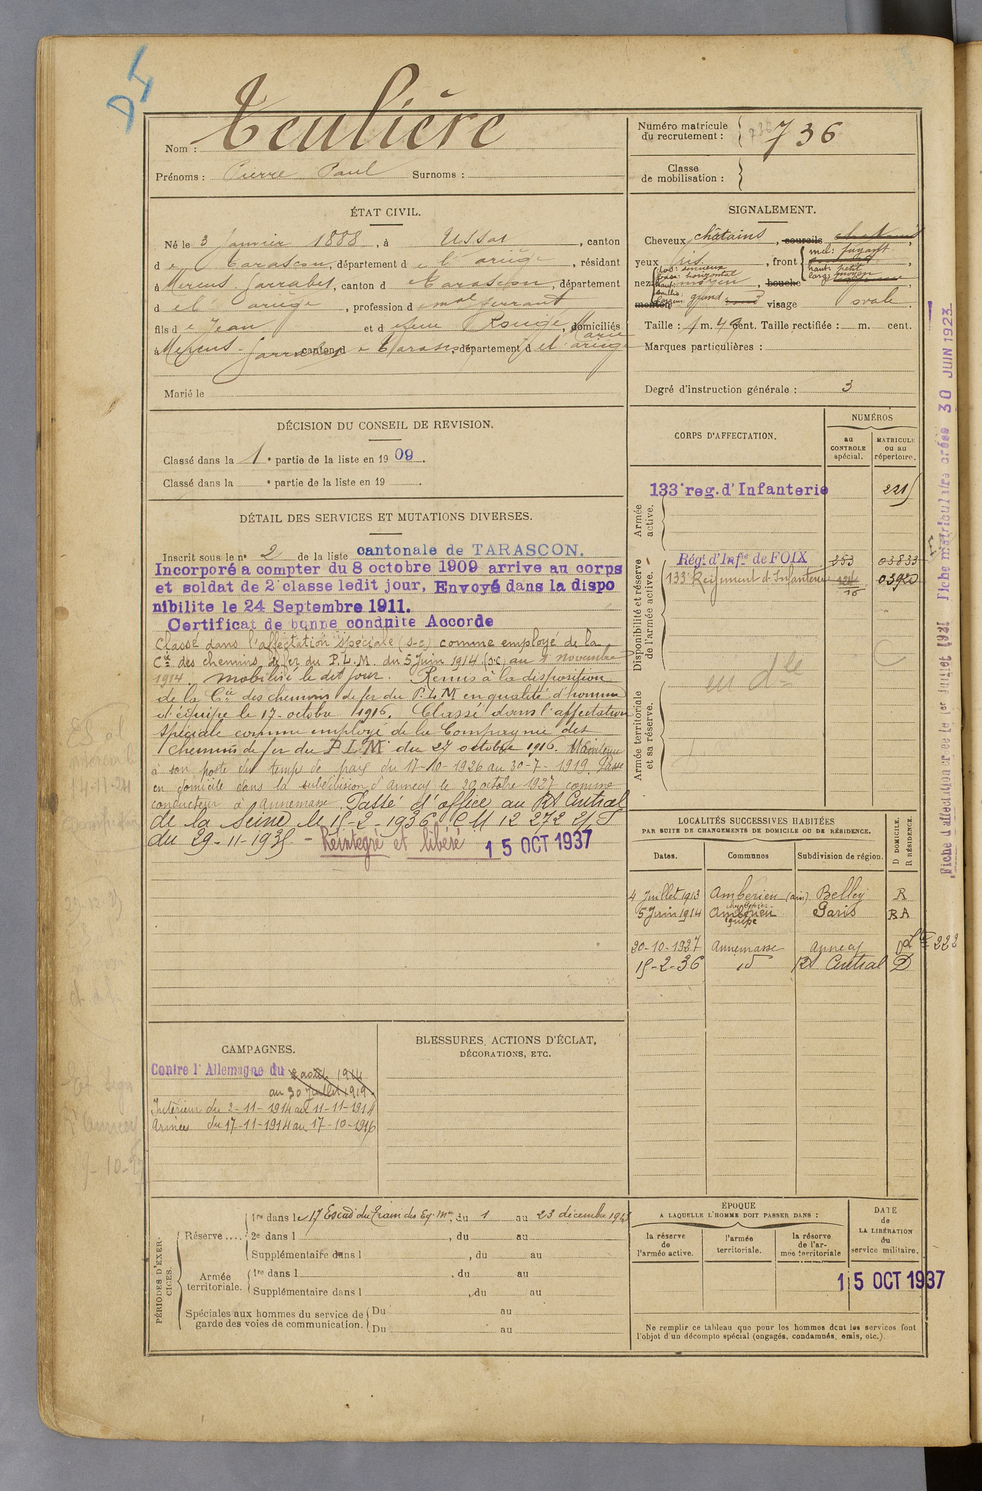 Teulière
Nom :
Prénoms : Pierre Paul Surnoms :
Numéro matricule du recrutement : 736
Classe de mobilisation :
ÉTAT CIVIL.
Né le 3 Janvier 1888, à Ussat, canton
de Tarascon, département de l'ariège, résidant
à Mercus-Garrabet, canton de Tarascon, département
de l'ariège, profession de mal ferrant
fils de Jean et de feue Rouge, Marie domiciliés
à Mercus-Garrabet canton de Tarascon, département de l'ariège
Marié le
SIGNALEMENT.
Cheveux châtains, sourcils
yeux gris, front { incl: fuyant
haut: petit
larg: moyen
nez { dos: sinueux
base: horizontal
haut: moyen
bouche
menton grand visage ovale.
Taille : 1 m. 49 cent. Taille rectifiée : m. cent.
Marques particulières :
Degré d'instruction générale : 3
DÉCISION DU CONSEIL DE REVISION.
Classé dans la 1e partie de la liste en 1909.
Classé dans la e partie de la liste en 19 .
DÉTAIL DES SERVICES ET MUTATIONS DIVERSES.
Inscrit sous le n° 2 de la liste cantonale de TARASCON.
Incorporé a compter du 8 octobre 1909 arrive au corps
et soldat de 2e classe ledit jour, Envoyé dans la dispo
nibilite le 24 Septembre 1911.
Certificat de bonne conduite Accorde
Classé dans l'affectation spéciale (s-c) comme employé de la
Cie des chemins de fer du P.L.M. du 5 Juin 1914 (sc) au 2 novembre
1914. Mobilisé le dit jour. Remis à la disposition
de la Cie des chemins de fer du P-L-M en qualité d'homme
d'équipe le 17-octobre 1916. Classé dans l'affectation
spéciale comme employé de la Compagnie des
chemins de fer du P.L.M du 27 octobre 1916. Maintenu
à son poste du temps de paix du 17-10-1926 au 30-7-1919. Passé
en domicile dans la subdivision d'Annecy le 20 octobre 1927 comme
conducteur à Annemasse. Passé d'office au Rt Central
de la Seine le 15-2-1936 C M 12 272 2/T
du 29-11-1935 - Réintégré et libéré 15 OCT 1937
CORPS D'AFFECTATION.
NUMÉROS
au CONTROLE spécial.
MATRICULE ou au répertoire.
Armée active.
133e reg. d'Infanterie 2215
Disponibilité et réserve de l'armée active.
Rég. d'Infie de FOIX 353 03833
133e Régiment d'Infanterie 0392
Armée territoriale et sa réserve.
en dlle
LOCALITÉS SUCCESSIVES HABITÉES
PAR SUITE DE CHANGEMENTS DE DOMICILE OU DE RÉSIDENCE.
D DOMICILE. R RÉSIDENCE.
Dates. Communes Subdivision de région.
4 Juillet 1913 Ambérieu (ain) Belley R
5 Juin 1914 Ambérieu Paris R A
équipe
20-10-1927 Annemasse Annecy Dlle 222
15-2-36 id Rt Central D
CAMPAGNES.
Contre l'Allemagne du 2 août 1914
au 30 Juillet 1919.
Intérieur du 2-11-1914 au 11-11-1914
Armées du 17-11-1914 au 17-10-1916
BLESSURES, ACTIONS D'ÉCLAT,
DÉCORATIONS, ETC.
PÉRIODES D'EXERCICES.
Réserve .... 1re dans le 17 Escad du Train des Eq. Mres, du 1 au 23 décembre 191
2e dans l , du au
Supplémentaire dans l , du au
Armée territoriale. 1re dans l , du au
Supplémentaire dans l , du au
Spéciales aux hommes du service de garde des voies de communication. Du au
Du au
ÉPOQUE
A LAQUELLE L'HOMME DOIT PASSER DANS :
la réserve de l'armée active.
l'armée territoriale.
la réserve de l'armée territoriale
DATE DE LA LIBÉRATION du service militaire.
15 OCT 1937
Ne remplir ce tableau que pour les hommes dont les services font
l'objet d'un décompte spécial (engagés, condamnés, omis, etc.).
Fiche d'affectation créée le 1er Juillet 1921 Fiche matriculaire créée 30 JUIN 1923